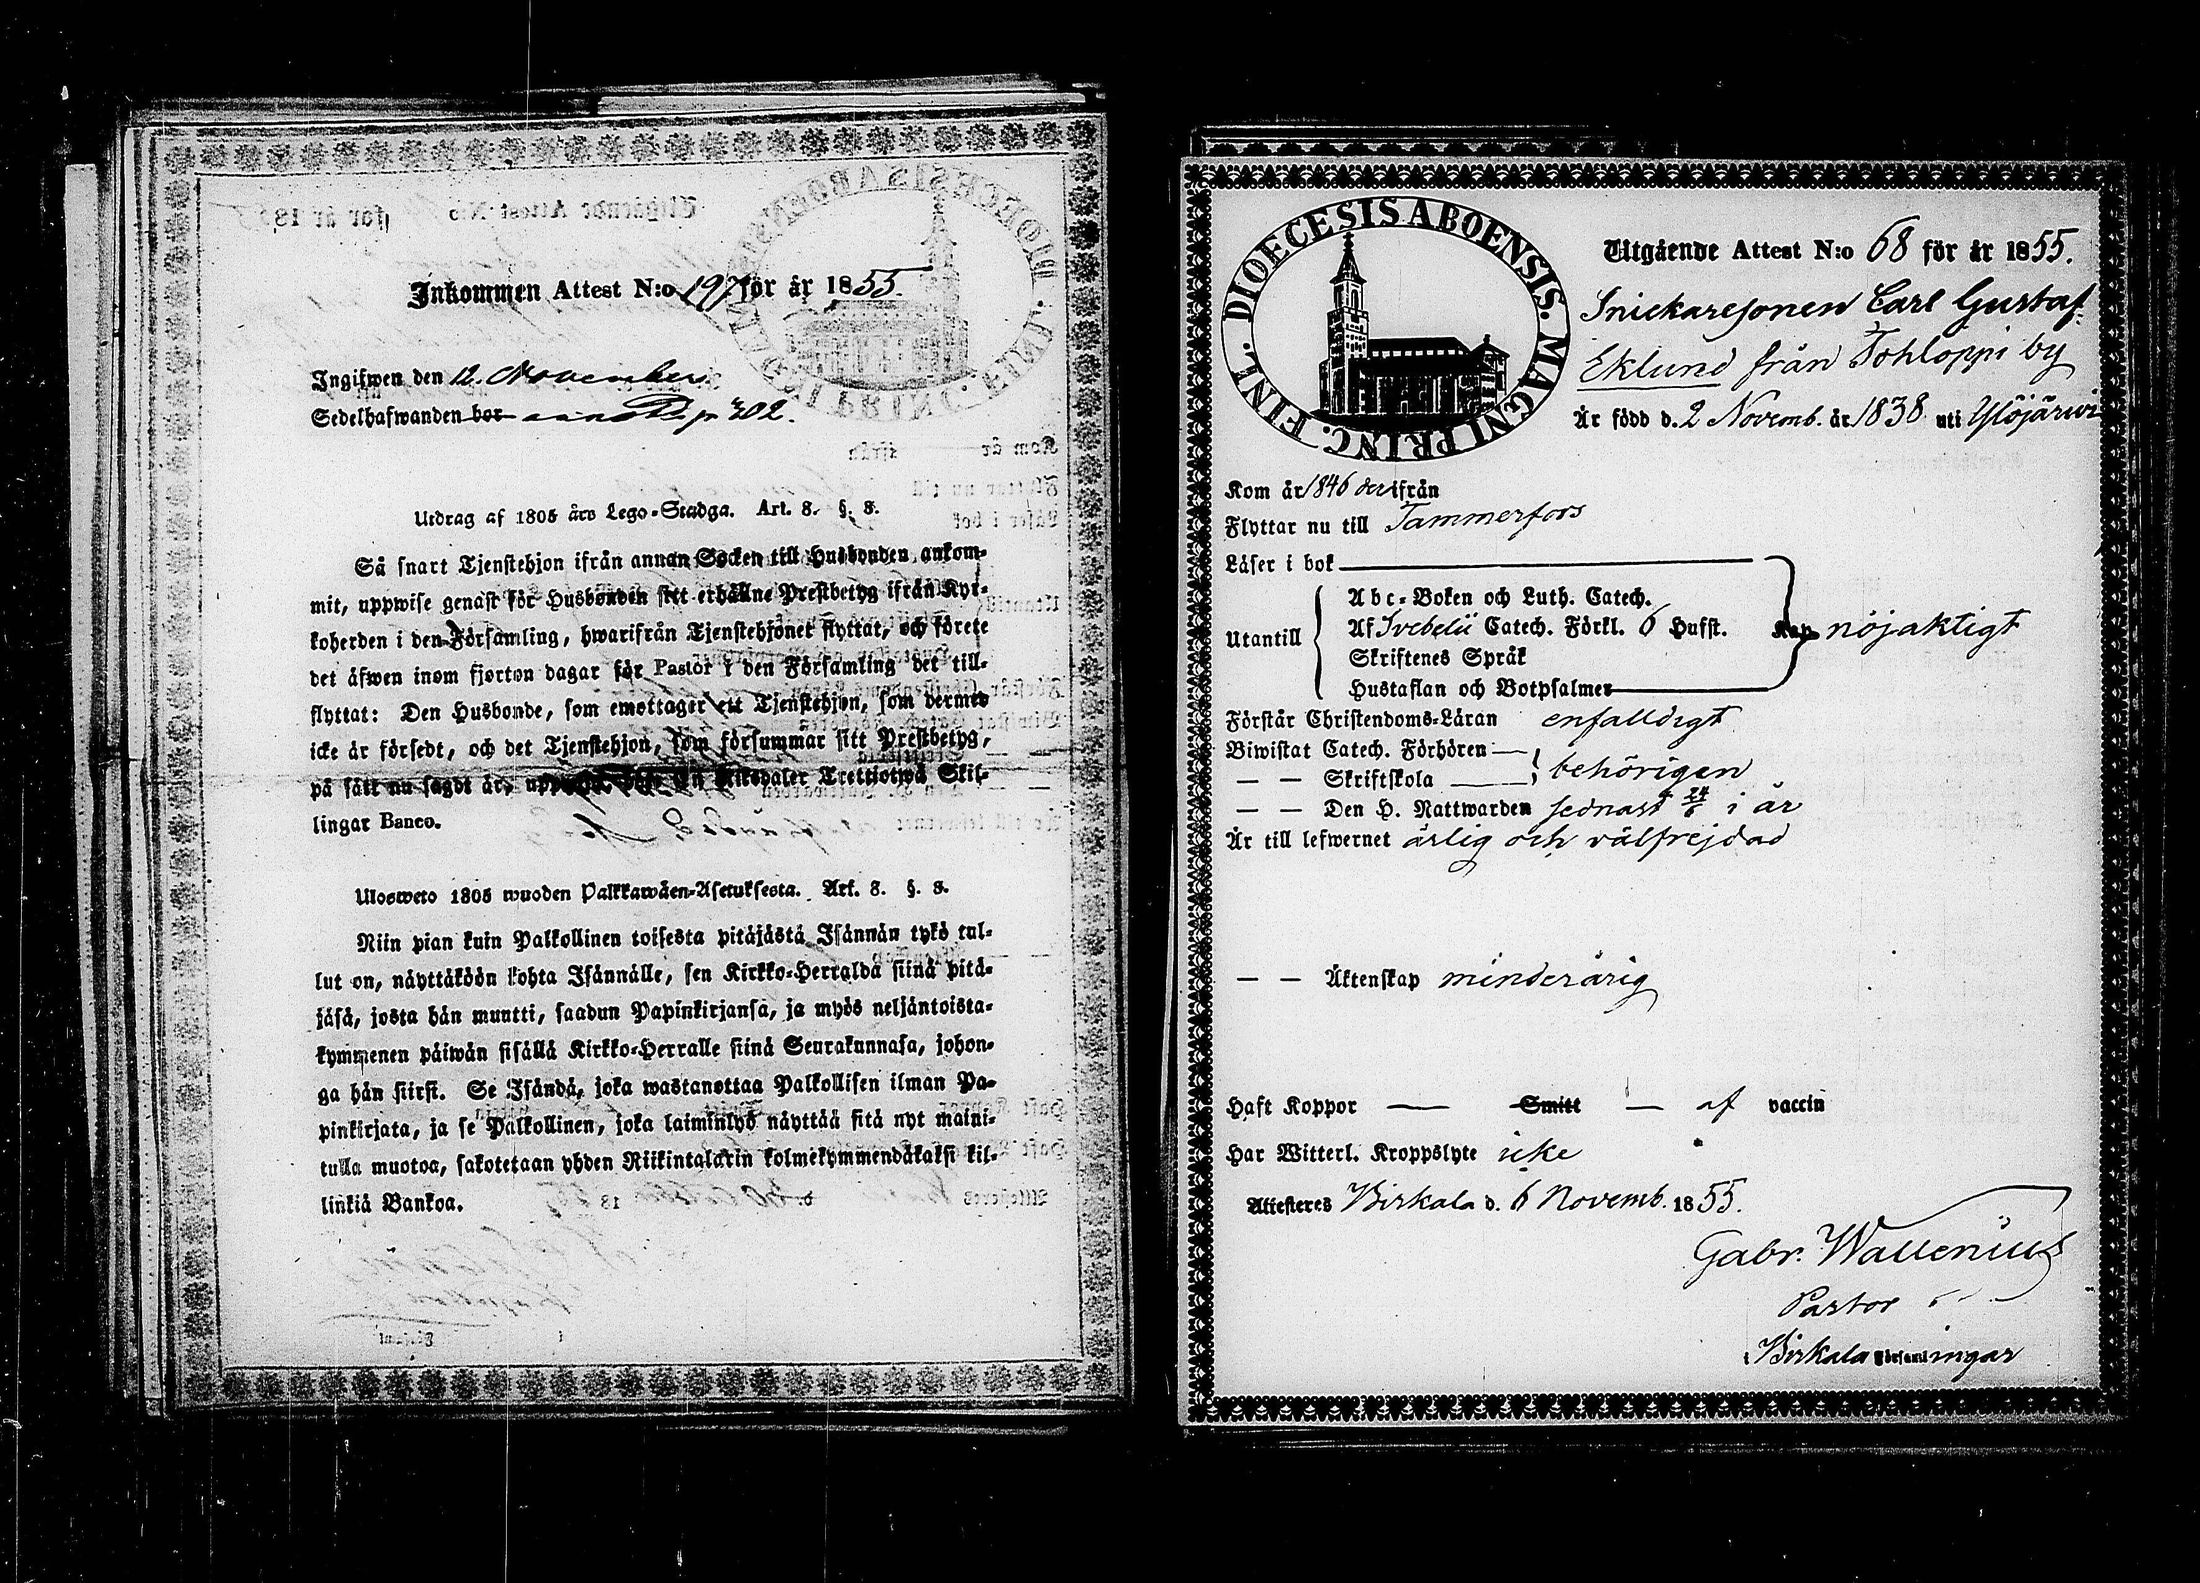 Inkommen Attest N:o 197 för år 1855.
Ingifwen den 12. November
Sedelhafwanden bor p 302.
Utdrag af 1805 års Lego-Stadga. Art. 8. §. 8.
Så snart Tjenstehjon ifrån annan Socken till Husbonden ankom-
mit, uppwise genast för Husbonden sitt erhållne Prestbetyg ifrån Kyr-
koherden i den Församling, hwarifrån Tjenstehjonet flyttat, och förete
det äfwen inom fjorton dagar för Pastor i den Församling det till-
flyttat: Den Husbonde, som emottager ett Tjenstehjon, som dermed
icke är försedt, och det Tjenstehjon, som försummar sitt Prestbetyg,
på sätt nu sagdt är, Riksdaler Trettiotwå Skil-
lingar Banco.
Ulosweto 1805 wuoden Palkkawäen-Asetuksesta. Art. 8. §. 8.
Niin pian kuin Palkollinen toisesta pitäjästä Isännän tykö tul-
lut on, näyttäköön kohta Isännälle, sen Kirkko-Herralda siinä pitä-
jäsä, josta hän muutti, saadun Papinkirjansa, ja myös neljäntoista-
kymmenen päiwän sisällä Kirkko-Herralle siinä Seurakunnasa, johon-
ga hän siirsi. Se Isändä, joka wastanottaa Palkollisen ilman Pa-
pinkirjata, ja se Palkollinen, joka laiminlyö näyttää sitä nyt maini-
tulla muotoa, sakotetaan yhden Riikintalarin kolmekymmendäkaksi kil-
linkiä Bankoa.
DIOECESIS ABOENSIS. MAGNI PRINC. FINL.
Utgående Attest N:o 68 för år 1855.
Snickaresonen Carl Gustaf
Eklund från Tohloppi by
Är född d. 2 Novemb. år 1838 uti Ylöjärwi
Kom år 1846 derifrån
Flyttar nu till Tammerfors
Läser i bok
Utantill
Abc-Boken och Luth. Catech.
Af Svebelii Catech. Förkl. 6 Hufst. Kap nöjaktigt
Skriftenes Språk
Hustaflan och Botpsalmer
Förstår Christendoms-Läran enfalldigt
Biwistat Catech. Förhören
— — Skriftskola behörigen
— — Den H. Nattwarden sednast 24/6 i år
Är till lefwernet ärlig och välfrejdad
— — Äktenskap minderårig
Haft Koppor — Smitt — af vaccin
Har Witterl. Kroppslyte icke
Attesteres Birkala d. 6 Novemb. 1855.
Gabr. Wallenius
Pastor i
Birkala Församlingar